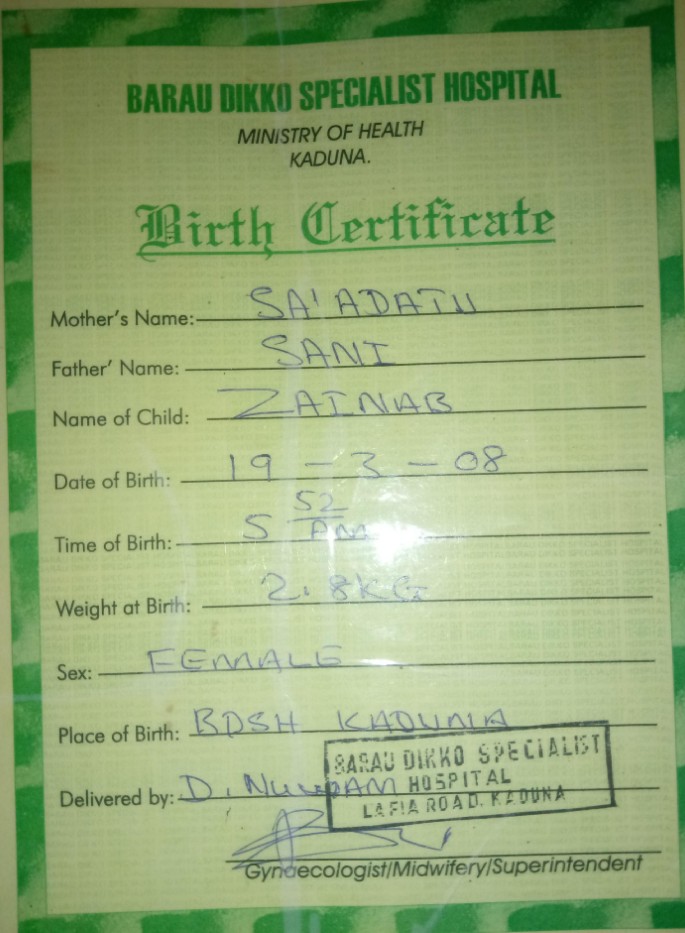 BARAU DIKKO SPECIALIST HOSPITAL
MINISTRY OF HEALTH
KADUNA.
Birth Certificate
Mother's Name: SA'ADATU
Father' Name: SANI
Name of Child: ZAINAB
Date of Birth: 19 - 3 - 08
Time of Birth: 5 52 AM
Weight at Birth: 2.8KG
Sex: FEMALE
Place of Birth: BDSH KADUNA
Delivered by: D.
BARAU DIKKO SPECIALIST
HOSPITAL
LAFIA ROAD. KADUNA
Gynaecologist/Midwifery/Superintendent